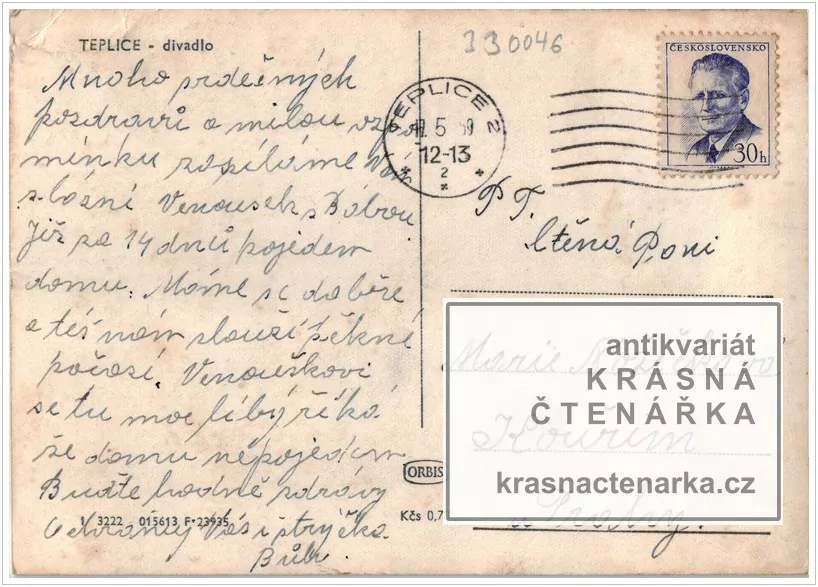 TEPLICE - divadlo
330046
Mnoho srdečných
pozdravů a milou vzpo
mínku zasíláme Vám
z lázní Venoušek s Bábou
Již za 14 dnů pojedem
domu. Máme se dobře
a též nám slouží pěkné
počasí. Venouškovi
se tu moc líbý říká
že domu nepojedem
Buďte hodně zdrávy
Ochraňuj Vás i strýčka
Bůh.
1 3222 015613 F*23935
Kčs 0,7
ORBIS
TEPLICE 2
5 59
12-13
2
ČESKOSLOVENSKO
30h
PT.
Ctěná Paní
Marie
Kouřim
u Prahy.
antikvariát
KRÁSNÁ
ČTENÁŘKA
krasnactenarka.cz